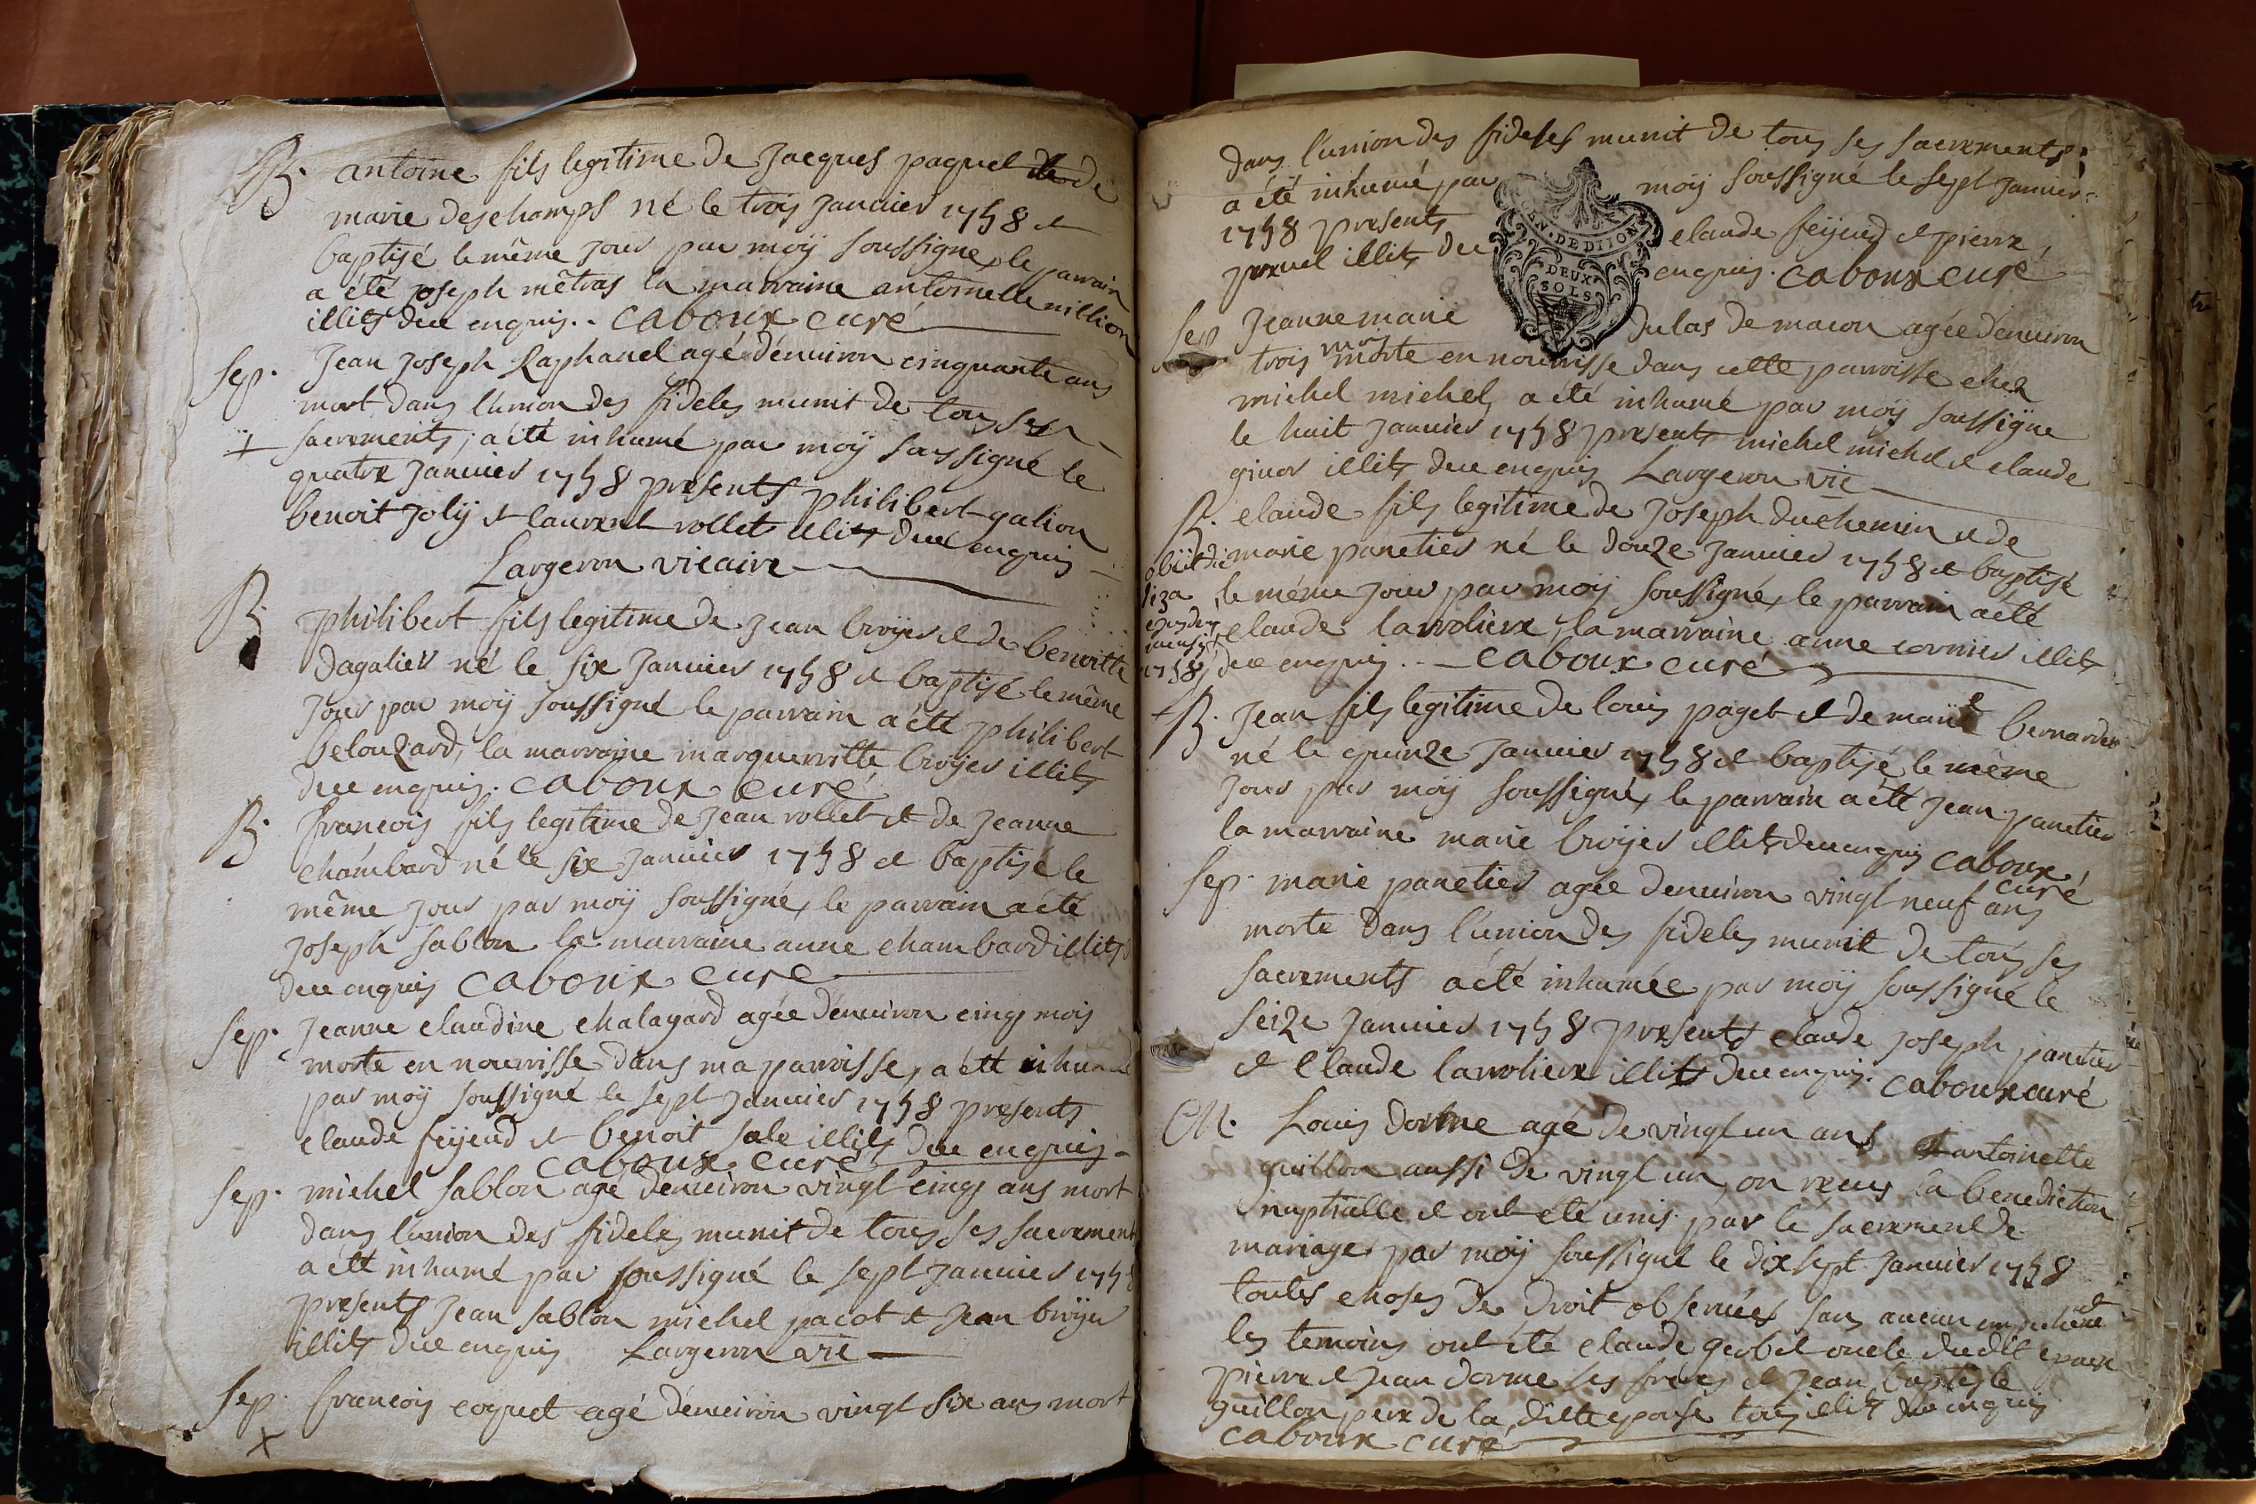 B. antoine fils legitime de Jacques paquel de de
marie deschamps né le trois Janvier 1758 et
baptisé le même Jour par moÿ soussigné, le parrain
a été joseph mêtras la marraine antoinette million
illits due enquis.. caboux curé
sep. Jean Joseph Raphanel agé d'environ cinquante ans
mort dans l'union des fideles munit de tous ses
+ sacrements, a été inhumé par moÿ soussigné le
quatre Janvier 1758 presents philibert galion
benoit Jolÿ et laurent rollet illits due enquis
Largeron vicaire
B. philibert fils legitime de Jean broÿer et de benoitte
dagalier né le six Janvier 1758 et baptisé le même
Jour par moÿ soussigné le parrain a été philibert
belouzard, la marraine marguerritte broÿer illits
due enquis. caboux curé
B. francois fils legitime de Jean rollet et de Jeanne
chambard né le six Janvier 1758 et baptisé le
même Jour par moÿ soussigné, le parrain a été
Joseph sablon la marraine anne chambard illits
due enquis caboux curé
sep. Jeanne claudine chalagard agée d'environ cinq mois
morte en nourrisse dans ma parroisse, a été inhumé
par moÿ soussigné le sept Janvier 1758 presents
claude feÿeud et benoit sale illits due enquis
caboux curé
sep. michel sablon agé d'environ vingt cinq ans mort
dans l'union des fideles munit de tous ses sacrement
a été inhumé par soussigné le sept Janvier 1758
presents Jean sablon michel pacot et Jean broÿer
illits due enquis Largeron vic
sep. francois coquet agé d'environ vingt six ans mort
+
dans l'union des fideles munit de tous ses sacrements
a été inhumé par moÿ soussigné le sept Janvier
1758 presents claude feÿeud et pierre
illits due enquis. caboux curé
GEN. DE DIION
DEUX
SOLS
sep Jeanne marie dulas de macon agée d'environ
trois mois morte en nourrisse dans cette parroisse chez
michel michel, a été inhumé par moÿ soussigné
le huit Janvier 1758 presents michel michel et claude
illits due enquis Largeron vic
B. claude fils legitime de Joseph duchemin et de
marie panetier né le douze Janvier 1758 et baptisé
le même Jour par moÿ soussigné, le parrain a été
claude larroliere, la marraine anne cornier illits
due enquis.. caboux curé
obiit die
1758
B. Jean fils legitime de louis paget et de marie bernardet
né le quinze Janvier 1758 et baptisé le même
Jour par moÿ soussigné, le parrain a été Jean panetier
la marraine marie broÿer illits due enquis caboux
curé
sep. marie panetier agée d'environ vingt neuf ans
morte dans l'union des fideles munit de tous ses
sacrements a été inhumée par moÿ soussigné le
seize Janvier 1758 presents claude Joseph panetier
et claude larroliere illits due enquis. caboux curé
M. Louis dorme agé de vingt un ans et antoinette
guillon aussi de vingt un, on recus la benediction
nuptialle et ont été unis par le sacrement de
mariage par moÿ soussigné le dix sept Janvier 1758
toutes choses de droit observées sans aucun
les temoins ont été claude oncle dudit epoux
pierre et Jean dorme ses freres et Jean baptiste
guillon pere de la ditte epouse tous illits due enquis
caboux curé